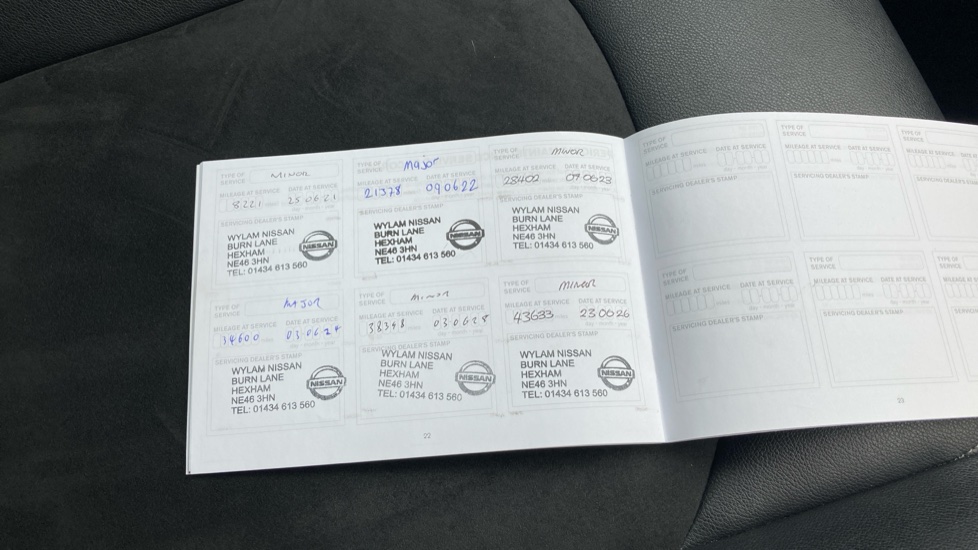 TYPE OF SERVICE MINOR
MILEAGE AT SERVICE DATE AT SERVICE
8221 250621
SERVICING DEALER'S STAMP
WYLAM NISSAN
BURN LANE
HEXHAM
NE46 3HN
TEL: 01434 613 560
NISSAN
TYPE OF SERVICE Major
MILEAGE AT SERVICE DATE AT SERVICE
21378 090622
SERVICING DEALER'S STAMP
WYLAM NISSAN
BURN LANE
HEXHAM
NE46 3HN
TEL: 01434 613 560
NISSAN
TYPE OF SERVICE MINOR
MILEAGE AT SERVICE DATE AT SERVICE
28402 090623
SERVICING DEALER'S STAMP
WYLAM NISSAN
BURN LANE
HEXHAM
NE46 3HN
TEL: 01434 613 560
NISSAN
TYPE OF SERVICE MAJOR
MILEAGE AT SERVICE DATE AT SERVICE
34600 030624
SERVICING DEALER'S STAMP
WYLAM NISSAN
BURN LANE
HEXHAM
NE46 3HN
TEL: 01434 613 560
NISSAN
TYPE OF SERVICE MINOR
MILEAGE AT SERVICE DATE AT SERVICE
38348
SERVICING DEALER'S STAMP
WYLAM NISSAN
BURN LANE
HEXHAM
NE46 3HN
TEL: 01434 613 560
NISSAN
TYPE OF SERVICE MINOR
MILEAGE AT SERVICE DATE AT SERVICE
43633 230626
SERVICING DEALER'S STAMP
WYLAM NISSAN
BURN LANE
HEXHAM
NE46 3HN
TEL: 01434 613 560
NISSAN
22
TYPE OF SERVICE
MILEAGE AT SERVICE DATE AT SERVICE
SERVICING DEALER'S STAMP
TYPE OF SERVICE
MILEAGE AT SERVICE DATE AT SERVICE
SERVICING DEALER'S STAMP
TYPE OF SERVICE
MILEAGE AT SERVICE
SERVICING
TYPE OF SERVICE
MILEAGE AT SERVICE DATE AT SERVICE
SERVICING DEALER'S STAMP
TYPE OF SERVICE
MILEAGE AT SERVICE DATE AT SERVICE
SERVICING DEALER'S STAMP
TYPE OF SERVICE
MILEAGE
SERVICING